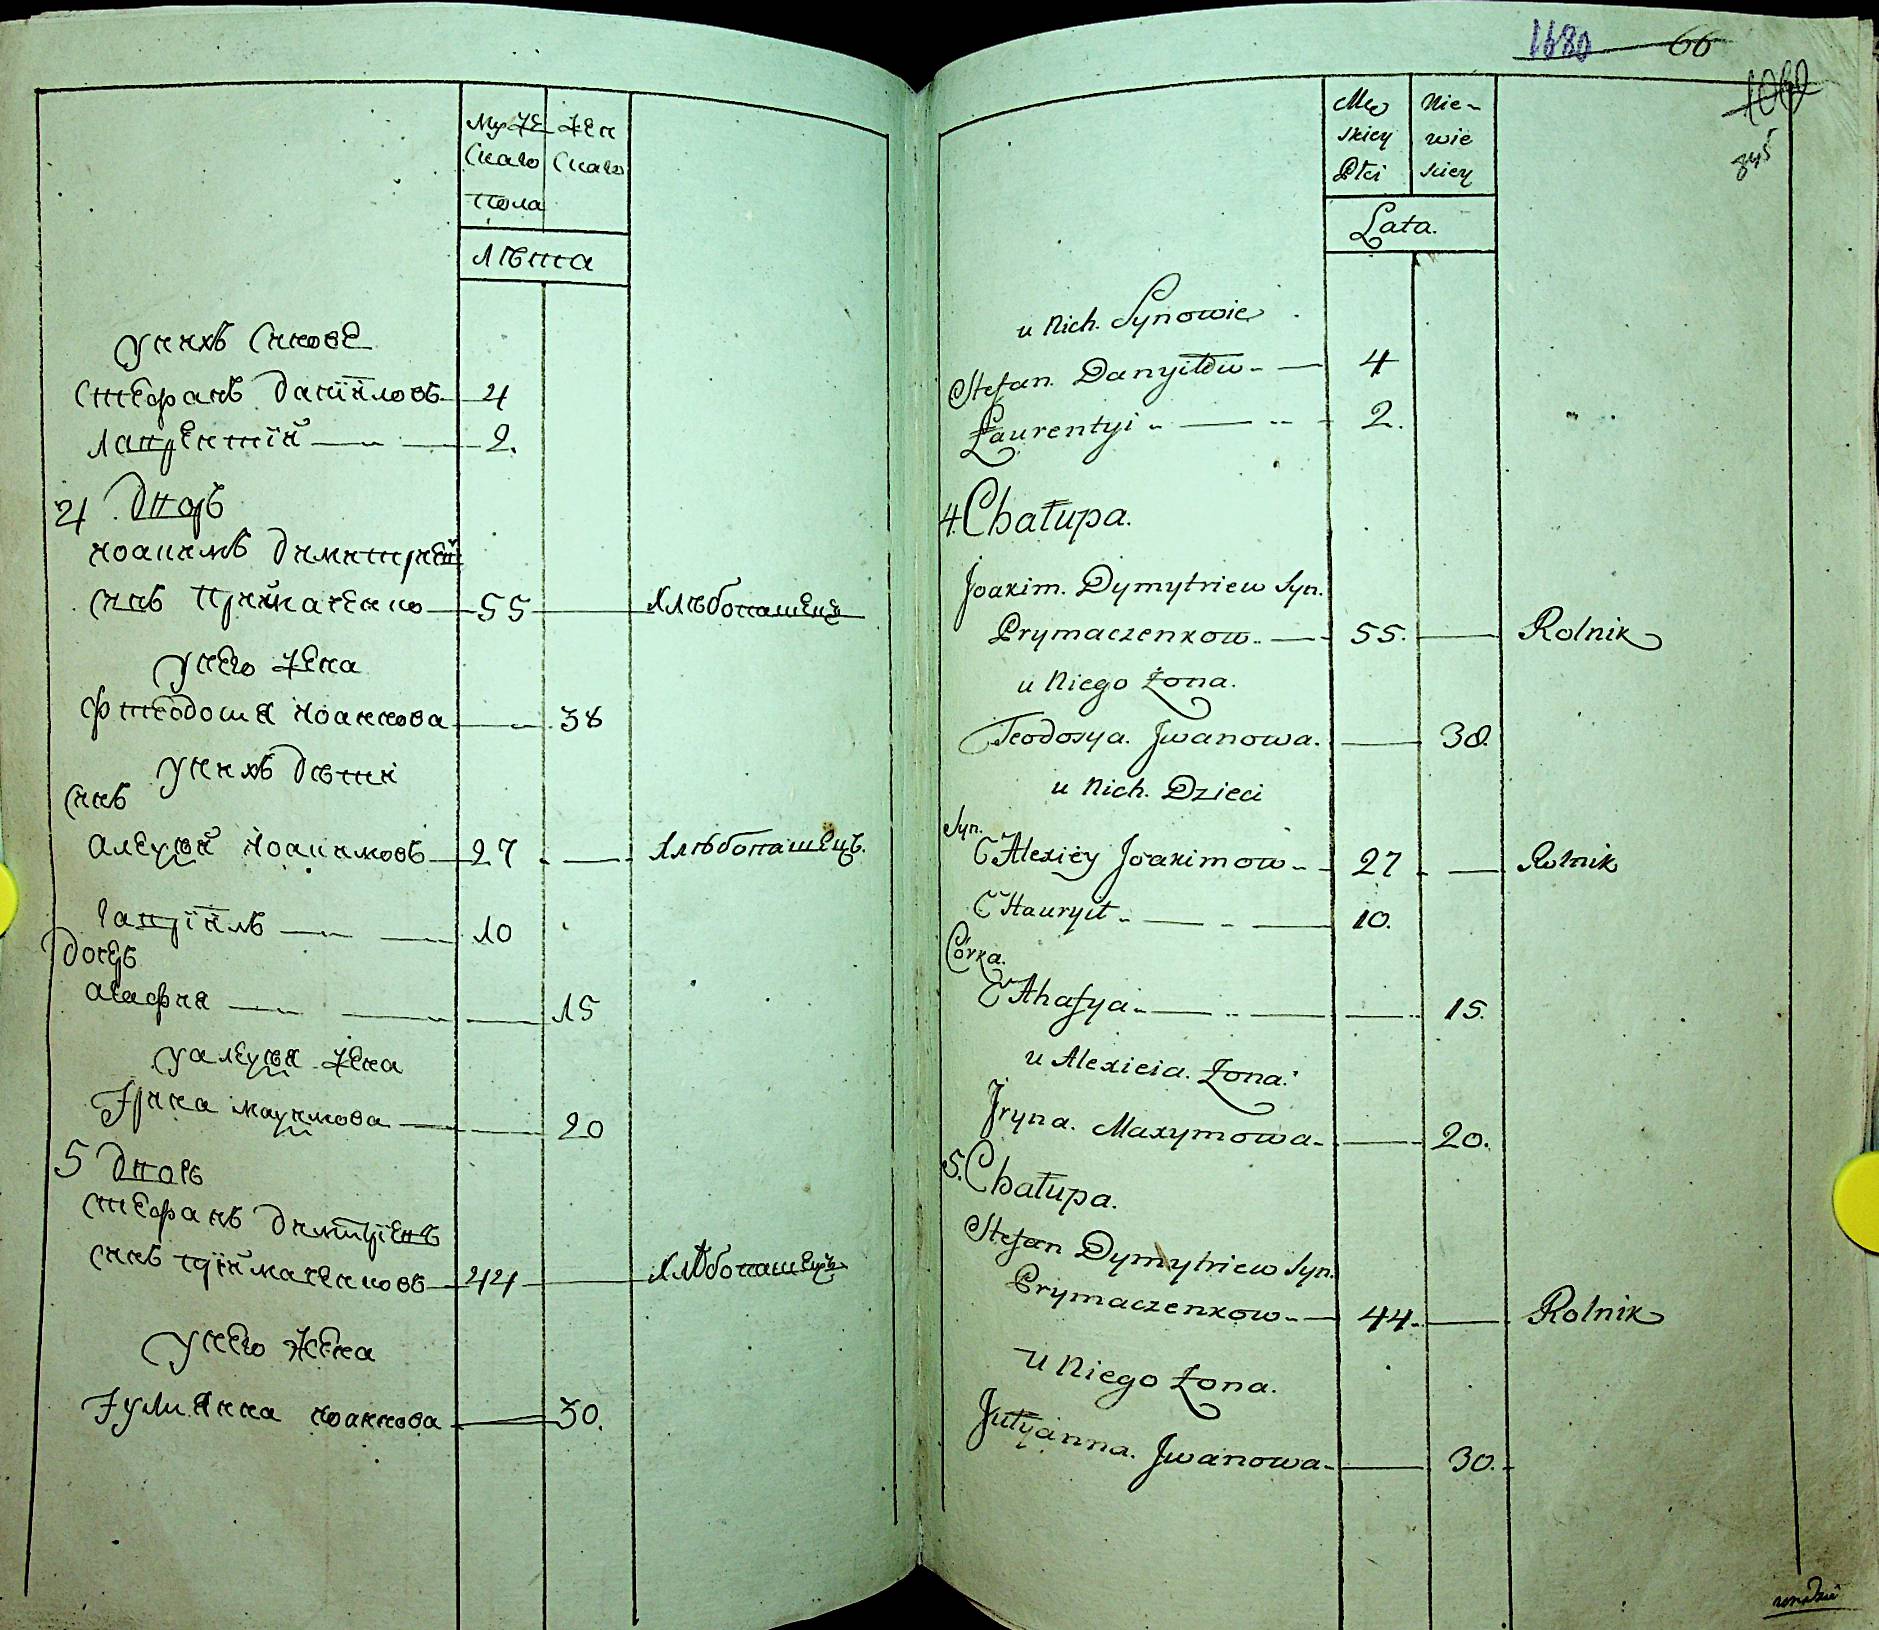 Мужe Жен
скаго скаго
пола
Лѣта
у нихъ синове
Стефанъ Даніиловъ 4
Лаврентій 2.
4 Дворъ
Иоакимъ Димитриев
синъ Примаченко 55 Хлѣбопашецъ
у него жена
Фтеодосия Иоаннова 38
у нихъ дѣти
синъ
Алеѯѣй Иоакимовъ 27 Хлѣбопашецъ.
Гавріилъ 10
дочеръ
Агафия 15
у Алеѯѣя жена
Ирина Маѯимова 20
5 Дворъ
Стефанъ Димитріевъ
синъ Пріймаченковъ 44 Хлѣбопашецъ
у него жена
Иулианна Иоаннова 30.
1680 66
1060
Męs
skiey
Płci
Nie-
wie
skiey
Lata.
u Nich. Synowie
Stefan. Danyiłow 4
Łaurentyi 2.
4. Chałupa.
Joakim. Dymytriew Syn.
Prymaczenkow 55. Rolnik
u Niego Żona.
Teodosya. Jwanowa. 38.
u Nich. Dzieci
Syn.
Alexiey Joakimow 27 Rolnik
Hauryił 10.
Córka.
Ahafya 15.
u Alexieia. Żona.
Jryna. Maxymowa 20.
5. Chałupa.
Stefan Dymytriew Syn.
Prymaczenkow 44. Rolnik
u Niego Żona.
Jułyanna. Jwanowa 30.